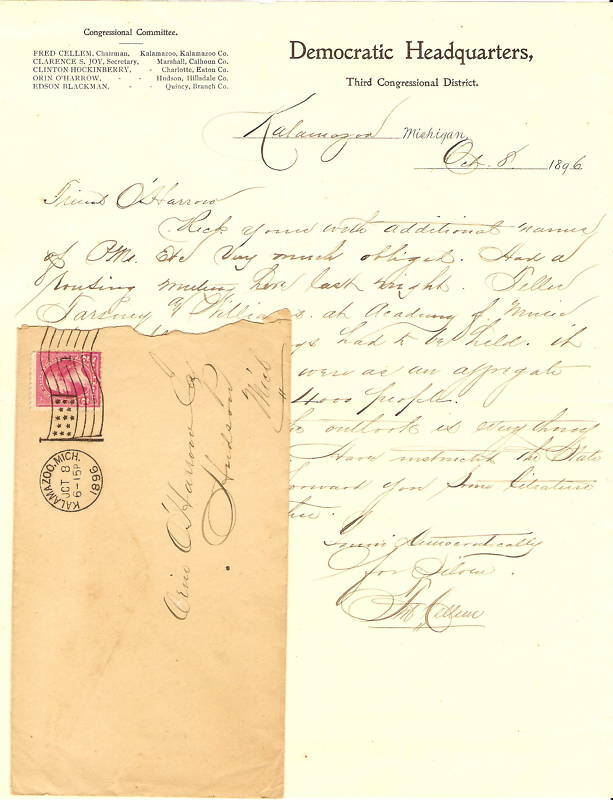 Congressional Committee.
FRED CELLEM, Chairman, Kalamazoo, Kalamazoo Co.
CLARENCE S. JOY, Secretary, Marshall, Calhoun Co.
CLINTON HOCKINBERRY, - Charlotte, Eaton Co.
ORIN O'HARROW, - - Hudson, Hillsdale Co.
EDSON BLACKMAN, - - Quincy, Branch Co.
Democratic Headquarters,
Third Congressional District.
Kalamazoo Michigan,
Oct. 8. 1896
Friend O'Harrow
yours with additional names
of P.Ms. Etc Very much obliged. Had a
rousing meeting here last night.
Tarsney & Williams. at Academy of Music
gs had to be held. it
were as an aggregate
4000 people.
outlook is everything
. Have instructed the State
forward you some literature
Yours Democratically
for Silver.
Fred Cellem
Orin O'Harrow Esq
Hudson
Mich
KALAMAZOO, MICH.
OCT 8
6-15P
1896